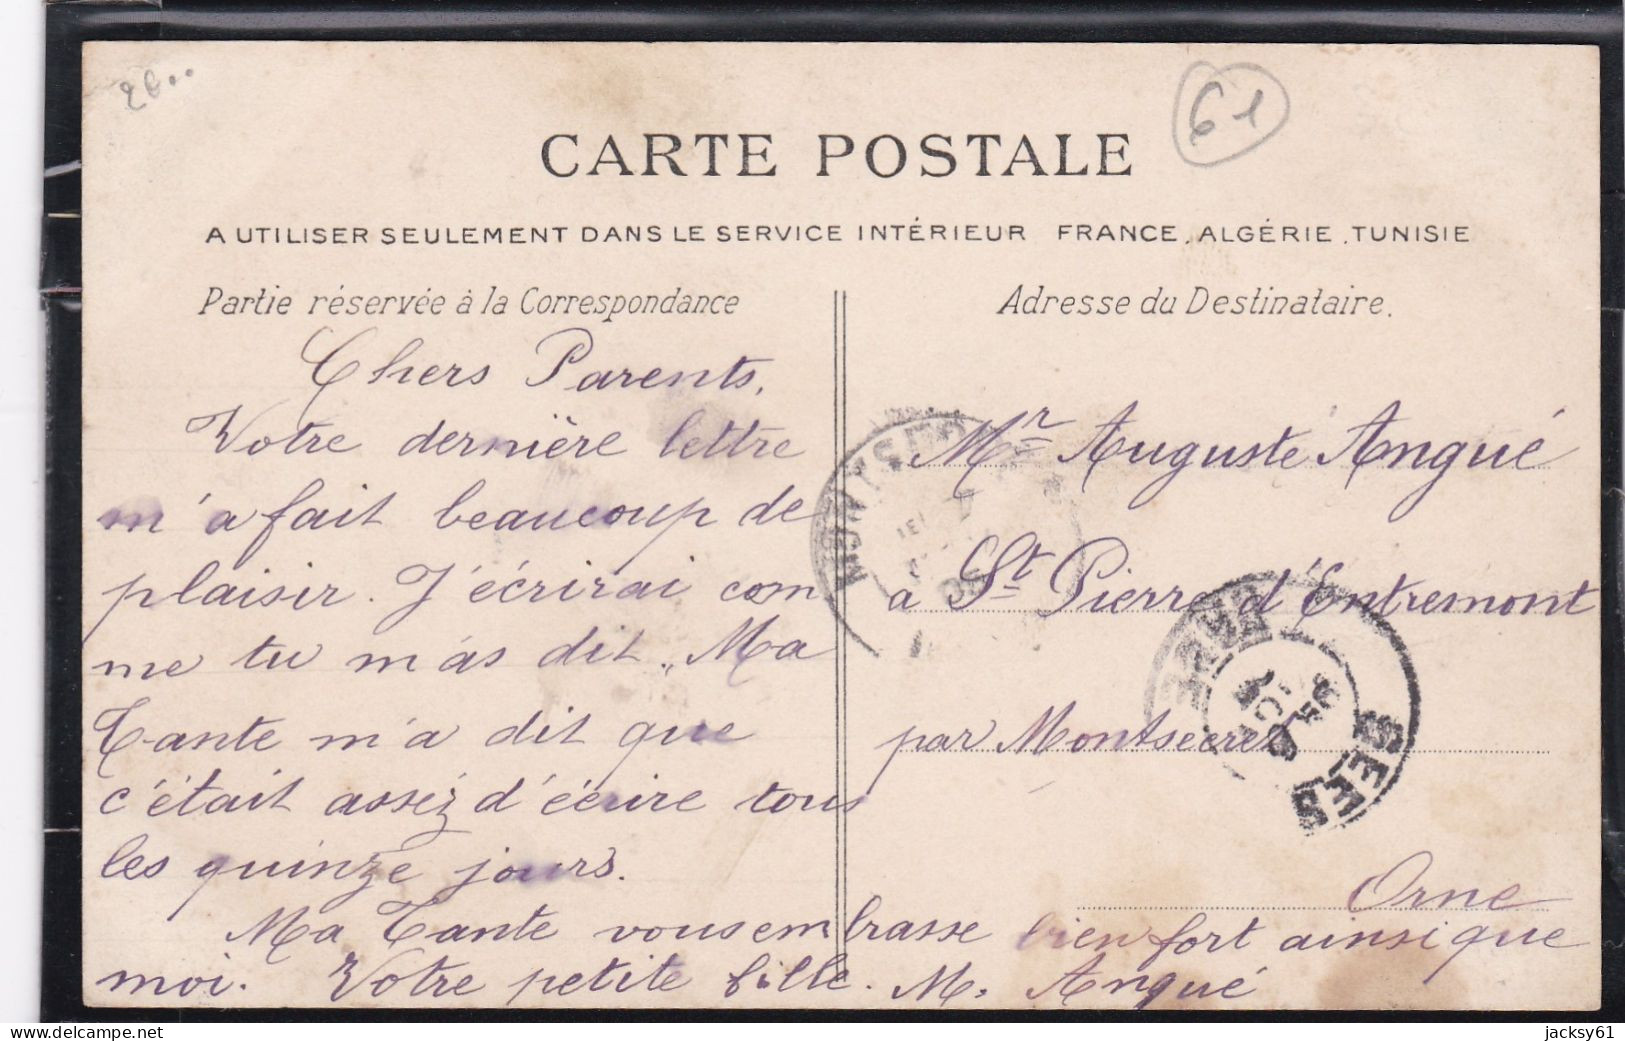 20..
61
CARTE POSTALE
A UTILISER SEULEMENT DANS LE SERVICE INTÉRIEUR FRANCE, ALGÉRIE, TUNISIE
Partie réservée à la Correspondance
Chers Parents,
Votre dernière lettre
m'a fait beaucoup de
plaisir. J'écrirai com
me tu m'as dit. Ma
Tante m'a dit que
c'était assez d'écrire tous
les quinze jours.
Ma Tante vous embrasse bien fort ainsi que
moi. Votre petite fille. M. Angué
Adresse du Destinataire.
Mr Auguste Angué
à St Pierre d'Entremont
par Montsecret
Orne
SEES
ORNE
delcampe.net
jacksy61